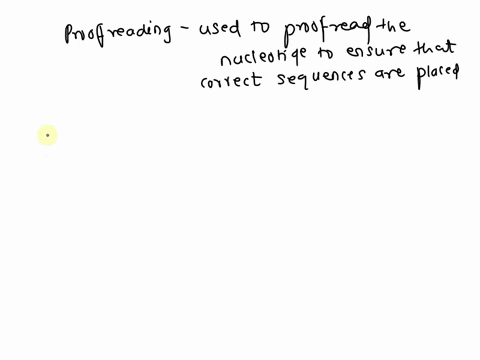 Proofreading - used to proofread the
nucleotide to ensure that
correct sequences are placed